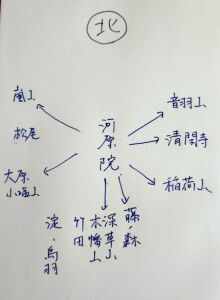 北
嵐山
松尾
大原
小塩山
河原院
音羽山
清閑寺
稲荷山
藤ノ森
深草山
木幡山
竹田
淀・鳥羽